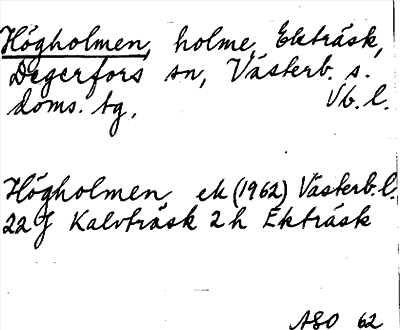 Högholmen, holme, Ekträsk,
Degerfors sn, Västerb. s.
doms. tg, Vb. l.
Högholmen ek (1962) Västerb. l.
22 J Kalvträsk 2 h Ekträsk
ASO 62